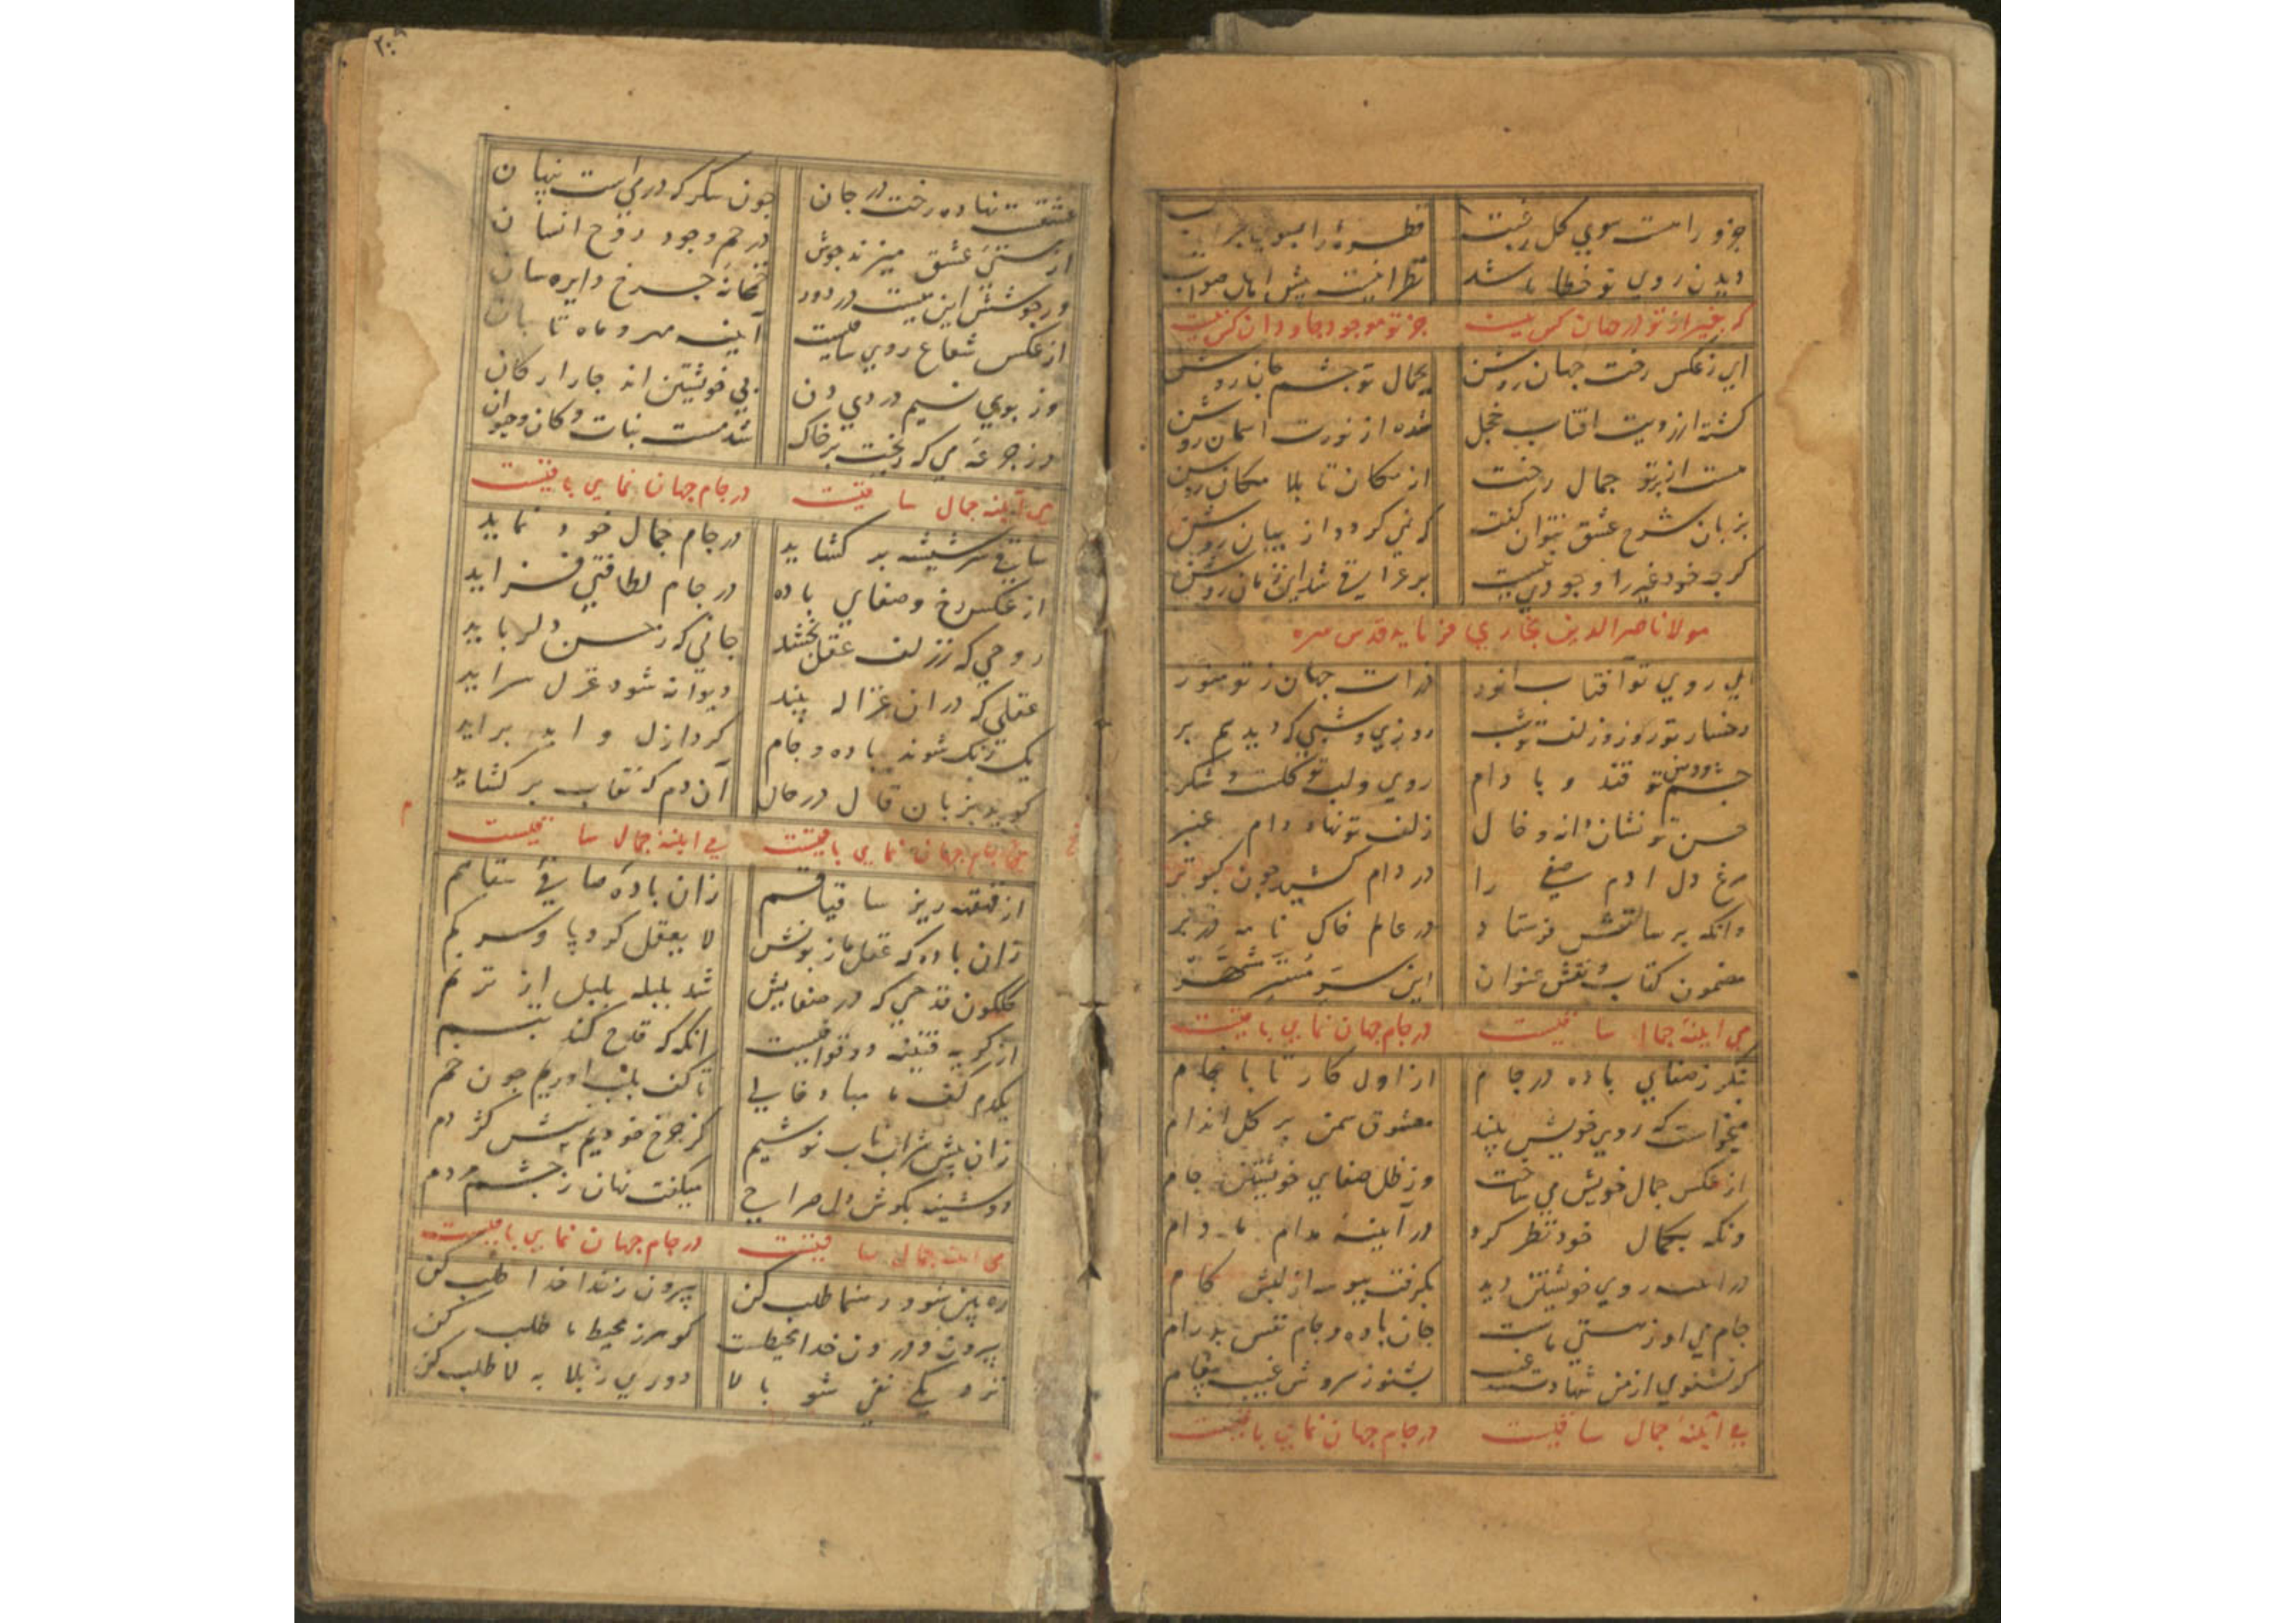 جزو را هست سوي کل رغبت قطره را بسوي
ديدن روي تو خطا باشد نظر اينست پيش اهل صواب
که بغير از تو در جهان کس نيست جز تو موجود جاودان کس نيست
اي ز عکس رخت جهان روشن بجمال تو چشم جان روشن
کشته از رويت افتاب خجل شده از نورت اسمان روشن
هست از پرتو جمال رخت از مکان تا بلا مکان روشن
بزبان شرح عشق نتوان کفت که نمي کردد از بيان روشن
کرچه خود غير را وجودي نيست بر عراقي شد اين زمان روشن
مولانا ناصر الدين بخاري فرمايد قدس سره
اي روي تو آفتاب انور ذرات جهان ز تو منور
رخسار تو روز و زلف تو شب روزي و شبي که ديد هم بر
چشم تو قند و بادام روي و لب تو کلست و شکر
حسن تو نشان دانه و خال زلف تو نهاد دام عنبر
مرغ دل ادم صفي را در دام کشيد چون کبوتر
وانکه برسالتش فرستاد در عالم خاک نامه در بر
مضمون کتاب و نقش عنوان اين سر مستتر مشتهر
مي اينه جمال ساقيست در جام جهان نماي باقيست
بنکر ز صفاي باده در جام از اول کار تا بانجام
ميخواست که روي خويش بيند معشوق سمن بر کل اندام
از عکس جمال خويش مي ساخت وز ظل صفاي خويشتن جام
وانکه بکمال خود نظر کرد در آينه مدام مادام
در اينه روي خويشتن ديد بکرفت ببوسه از لبش کام
جام مي او ز هستي ماست جان باده و جام نفس بدرام
کر نشنوي از من شهادت بشنو ز سروش غيب پيغام
مي آينه جمال ساقيست در جام جهان نماي باقيست
عشقت نهاده رخت در جان چون سکر که در مي است پنهان
از مستي عشق ميزند جوش در خم وجود روح انسان
ور جوشش اين مي نيست در دور خمخانه چرخ دايره سان
از عکس شعاع روي ساقيست آينه مهر و ماه تابان
وز بوي نسيم دردي دن بي خويشتن اند چار ارکان
وز جرعه مي که ريخت بر خاک شد مست نبات و کان و حيوان
مي آينه جمال ساقيست در جام جهان نماي باقيست
ساقي سر شيشه بر کشايد در جام جمال خود نمايد
از عکس رخ و صفاي باده در جام لطافتي فزايد
روحي که ز زلف عقل بخشد جاني که ز حسن دلربايد
عقلي که در ان غزاله بيند ديوانه شود غزل سرايد
يک رنک شوند باده و جام کرد ازل و ابد برايد
کويد بزبان قال در حال آن دم که نقاب بر کشايد
مي جام جهان نماي باقيست مي اينه جمال ساقيست
از قنينه ريز ساقيا قم زان باده صافي سقاهم
زان باده که عقل از بويش لا يعقل کرد پا و سر کم
کلکون قدحي که در صفايش شد بلبله بلبل از ترنم
از کريه قنينه ذوقوافيست انکه که قدح کند تبسم
يکدم کف ما مباد خالي تا کف بلب اوريم چون خم
زان پيش شراب ناب نوشيم کز چرخ خوريم نيش کژدم
دوشينه بکوش دل صراحي ميکفت نهان ز چشم مردم
مي اينه جمال ساقيست در جام جهان نماي باقيست
ره بين شو و رهنما طلب کن بيرون ز ندا خدا طلب کن
بيرون و درون خدا محيطست کوهر ز محيط ما طلب کن
نزديکي نفي شو بالا دوري ز بلا به لا طلب کن